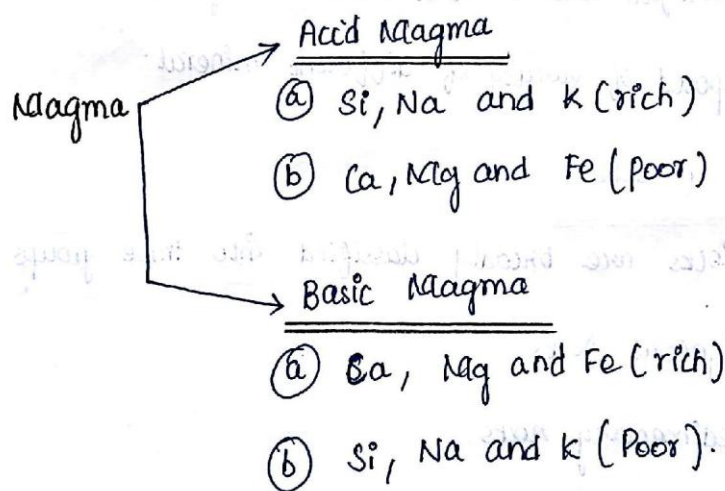 Acid Magma
Magma
ⓐ Si, Na and K (rich)
ⓑ Ca, Mg and Fe (Poor)
Basic Magma
ⓐ Ca, Mg and Fe (rich)
ⓑ Si, Na and K (Poor).